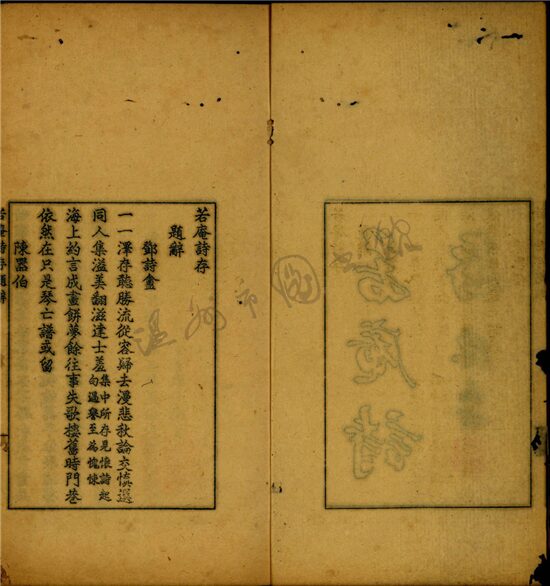 若庵詩存
題辭
鄧詩盦
一一澤存聽勝流從容歸去漫悲秋論交慎選
同人集溢美翻滋達士羞集中所存見懷詩起句過譽至為愧悚
海上約言成畫餅夢餘往事失歌樓舊時門巷
依然在只是琴亡譜或留
陳器伯
若庵詩存題辭
溫州市圖